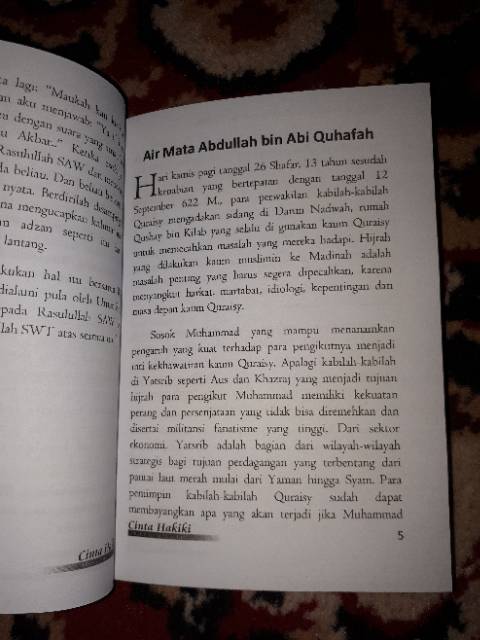 lagi: "Maukah kau
aku menjawab: "Ya
dengan suara yang
Akbar.." Ketika
Rasulullah SAW dan
beliau. Dan belau
nyata. Berdirilah
mengucapkan kalimat
adzan seperti itu
lantang.
kukan hal itu bersama
dialami pula oleh Umar
pada Rasulullah SAW
llah SWT atas semua
Cinta
Air Mata Abdullah bin Abi Quhafah
Hari kamis pagi tanggal 26 Shafar, 13 tahun sesudah
kenabian yang bertepatan dengan tanggal 12
September 622 M., para perwakilan kabilah-kabilah
Quraisy mengadakan sidang di Darun Nadwah, rumah
Qushay bin Kilab yang selalu di gunakan kaum Quraisy
untuk memecahkan masalah yang mereka hadapi. Hijrah
yang dilakukan kaum muslimin ke Madinah adalah
masalah penting yang harus segera dipecahkan, karena
menyangkut harkat, martabat, idiologi, kepentingan dan
masa depan kaum Quraisy.
Sosok Muhammad yang mampu menanamkan
pengaruh yang kuat terhadap para pengikutnya menjadi
inti kekhawatiran kaum Quraisy. Apalagi kabilah-kabilah
di Yatsrib seperti Aus dan Khazraj yang menjadi tujuan
hijrah para pengikut Muhammad memiliki kekuatan
perang dan persenjataan yang tidak bisa diremehkan dan
disertai militansi fanatisme yang tinggi. Dari sektor
ekonomi, Yatsrib adalah bagian dari wilayah-wilayah
strategis bagi tujuan perdagangan yang terbentang dari
pantai laut merah mulai dari Yaman hingga Syam. Para
pemimpin kabilah-kabilah Quraisy sudah dapat
membayangkan apa yang akan terjadi jika Muhammad
Cinta Hakiki
5